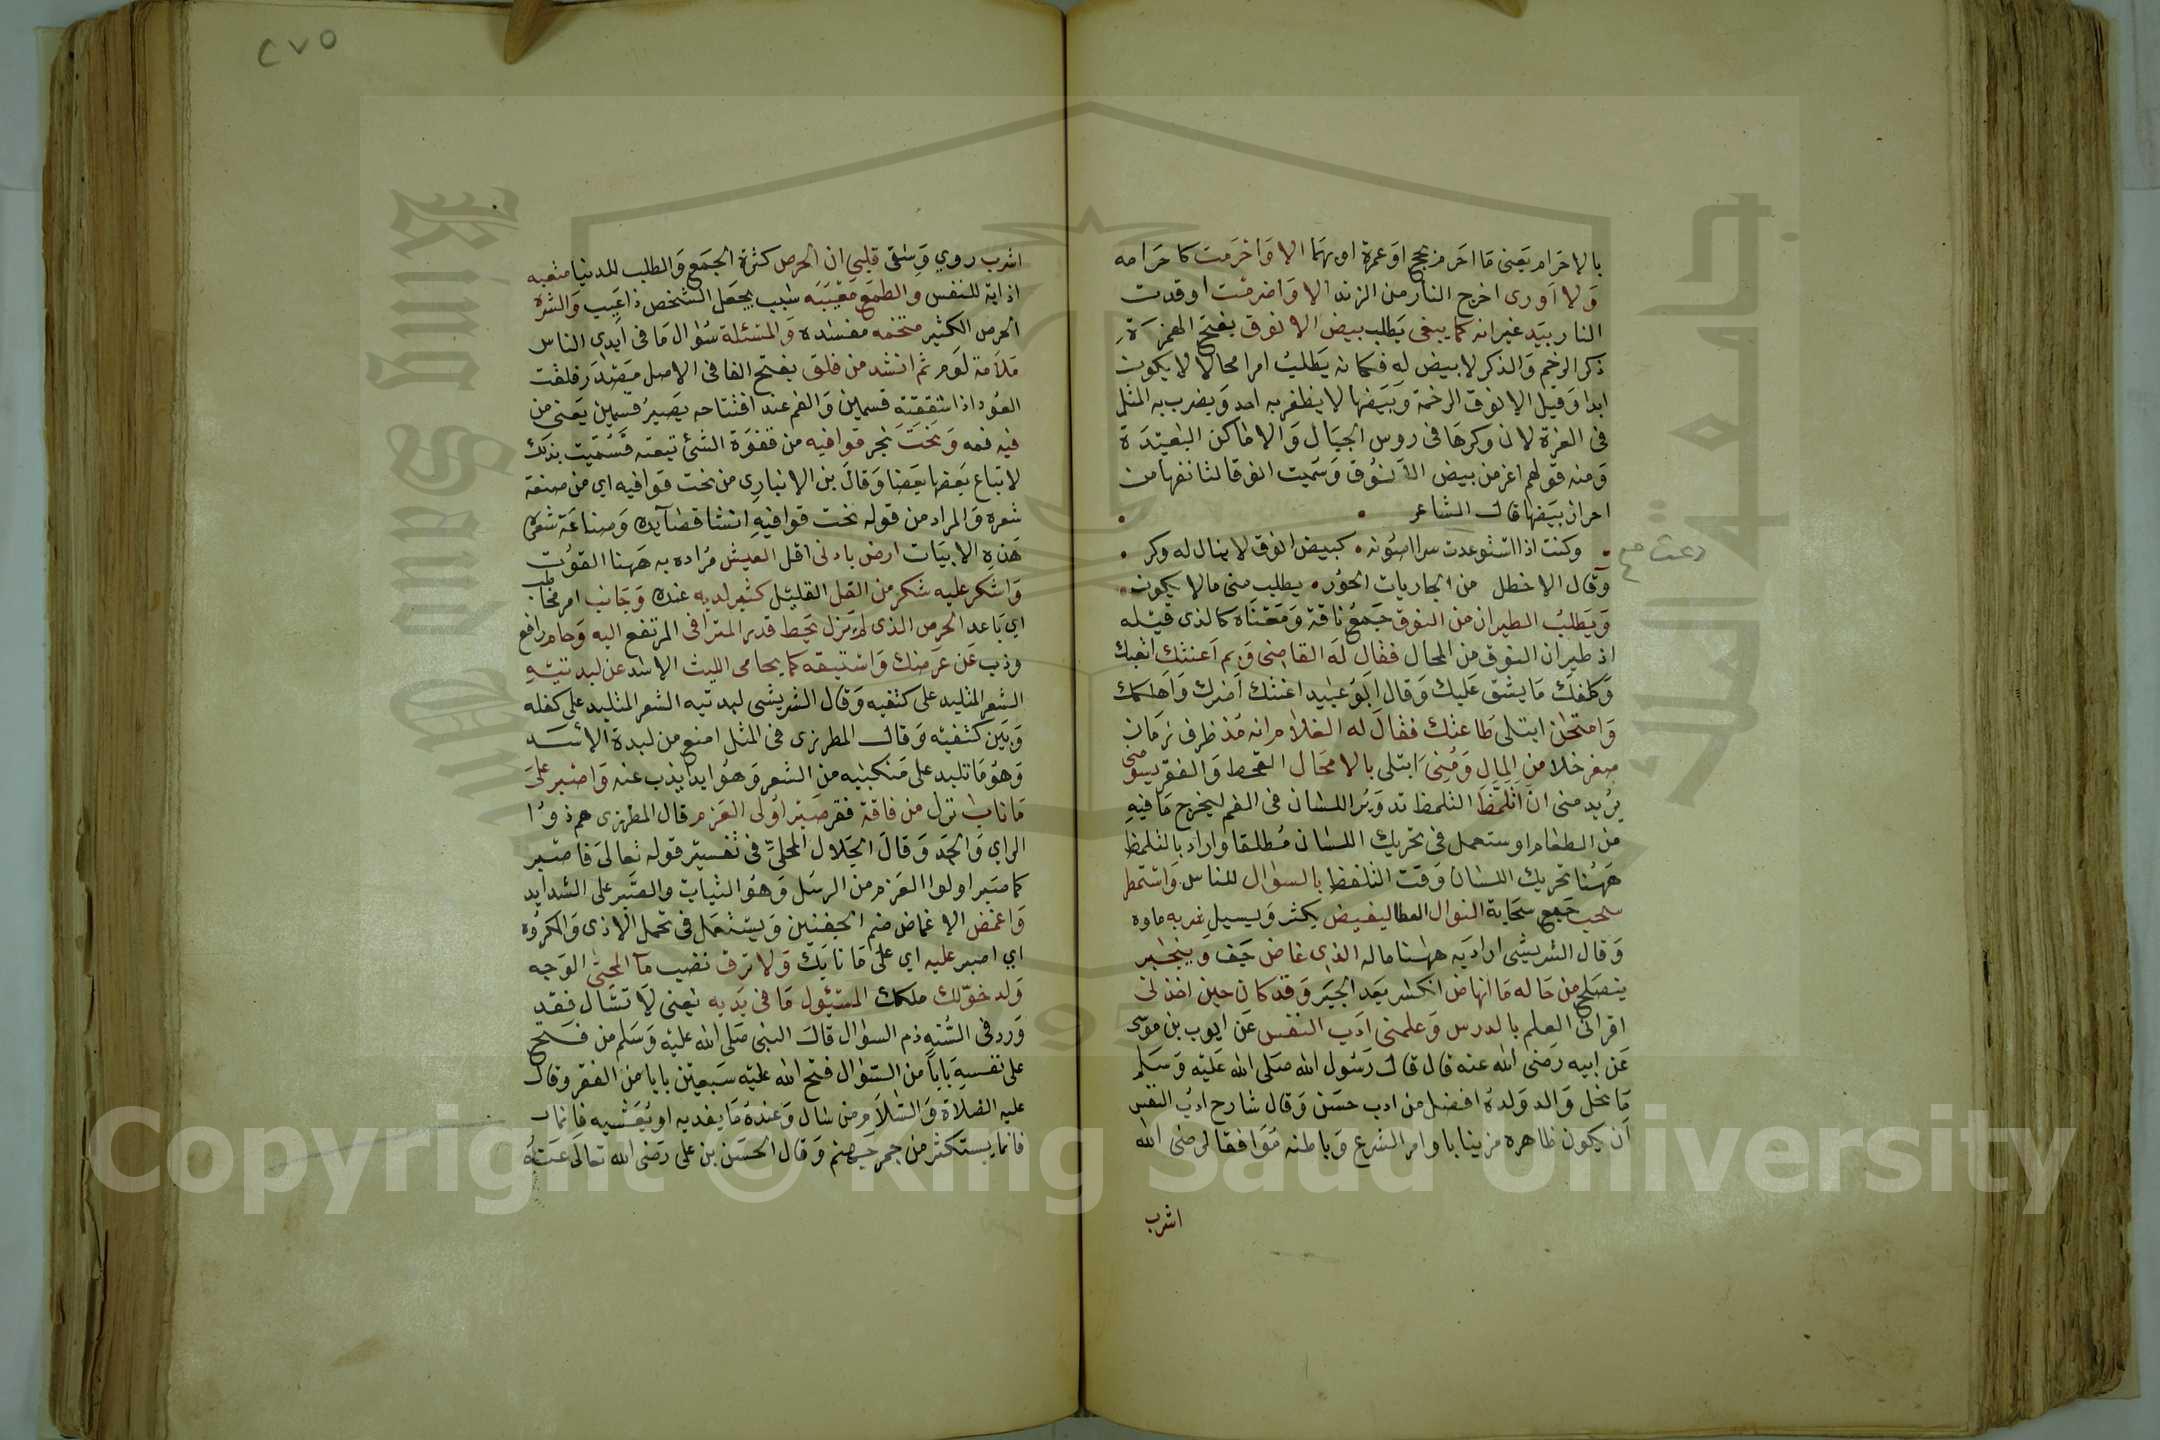 بالاحرام يعنى ما احرم بحج او عمرة او بهما الا واحرمت كاحرامه
ولا اورى اخرج النار من الزند الا واضرمت اوقدت
النار بيد غير انه كما يبغى يطلب بيض الانوق بفتح الهمزة
ذكر الرخم والذكر لا بيض له فكانه يطلب امرا محالا لا يكون
ابدا وقيل الانوق الرخمة وبيضها لا يظفر به احد ويضرب به المثل
فى العزة لان وكرها فى روس الجبال والاماكن البعيدة
ومنه قولهم اعز من بيض الانوق وسميت انوقا لتانفها من
احراز بيضها قال الشاعر
وكنت اذا استودعت سرا اصونه كبيض انوق لا ينال له وكر
وقال الاخطل من الجاريات الحور يطلب منى ما لا يكون
ويطلب الطيران من النوق جمع ناقة ومعناه كالذى قبله
اذ طيران النوق من المحال فقال له القاضى وبم اعنتك اتعبك
وكلفك ما يشق عليك وقال ابو عبيد اعنتك اضرك واهلكك
وامتحن ابتلى طاعتك فقال له الغلام انه مذ ظرف زمان
صفر خلا من المال ومنى ابتلى بالامحال القحط والفقر يسومنى
يريد منى ان اتلمظ التلمظ تدوير اللسان فى الفم ليخرج ما فيه
من الطعام او ستعمل فى تحريك اللسان مطلقا واراد بالتلمظ
ههنا تحريك اللسان وقت التلفظ بالسوال للناس واستمطر
سحب جمع سحابة النوال العطا ليفيض يكثر ويسيل شربه ماوه
وقال الشريشى اراد به ههنا ماله الذى غاض جف وينجبر
ينصلح من حاله ما انهاض انكسر بعد الجبر وقد كان حين اخذنى
اقرانى العلم بالدرس وعلمنى ادب النفس عن ايوب بن موسى
عن ابيه رضى الله عنه قال قال رسول الله صلى الله عليه وسلم
ما نحل والد ولده افضل من ادب حسن وقال شارح ادب النفس
ان يكون ظاهره مزينا باوامر الشرع وباطنه موافقا لرضى الله
اشرب
٢٧٥
اشرب روي وسقى قلبى ان الحرص كثرة الجمع والطلب للدنيا متعبه
اذاية للنفس والطمع معيبه سبب يجعل الشخص ذا عيب والشره
الحرص الكثير متخمه مفسده والمسئلة سؤال ما فى ايدى الناس
ملامة لوم ثم انشد من فلق بفتح الفا فى الاصل مصدر فلقت
العود اذا شققته قسمين والفم عند افتتاحه يصير قسمين يعنى من
فيه فمه ونحت نجر قوافيه من قفوة الشئ تبعته فسميت بذلك
لاتباع بعضها بعضا وقال بن الانبارى من نحت قوافيه اى من صنعة
شعره والمراد من قوله نحت قوافيه انشا قصآيده وصناعة شعره
هذه الابيات ارض بادنى اقل العيش مراده به ههنا القوت
واشكر عليه شكر من القل القليل كثير لديه عنده وجانب امر مخاطب
اى باعد الحرص الذى لم يزل يحط قدر المترا فى المرتفع اليه وحام رافع
وذب عن عرضك واستبقه كما يحامى الليث الاسد عن لبدتيه
الشعر المتلبد على كتفيه وقال الشريشى لبدتيه الشعر المتلبد على كفله
وبين كتفيه وقال المطرزى فى المثل امنع من لبدة الاسد
وهو ما تلبد على منكبيه من الشعر وهو ابدا يذب عنه واصبر على
ما ناب نزل من فاقة فقر صبر اولى العزم قال المطرزى هم ذوو ا
الراى والجد وقال الجلال المحلى فى تفسير قوله تعالى فاصبر
كما صبر اولوا العزم من الرسل وهو الثبات والصبر على الشدايد
واغمض الاغماض ضم الجفنين ويستعمل فى تحمل الاذى والمكروه
اى اصبر عليه اى على ما نابك ولا ترق تضيب مآ المحيى الوجه
ولد خولك ملكك المسئول ما فى يديه يعنى لا تسال فقد
ورد فى السنه ذم السوال قال النبى صلى الله عليه وسلم من فتح
على نفسه بابا من السوال فتح الله عليه سبعين بابا من الفقر وقال
عليه الصلاة والسلام من سال وعنده ما يغديه او يعشيه فانما
فانما يستكثر من جمر جهنم وقال الحسن بن على رضى الله تعالى عنه
Copyright © King Saud University